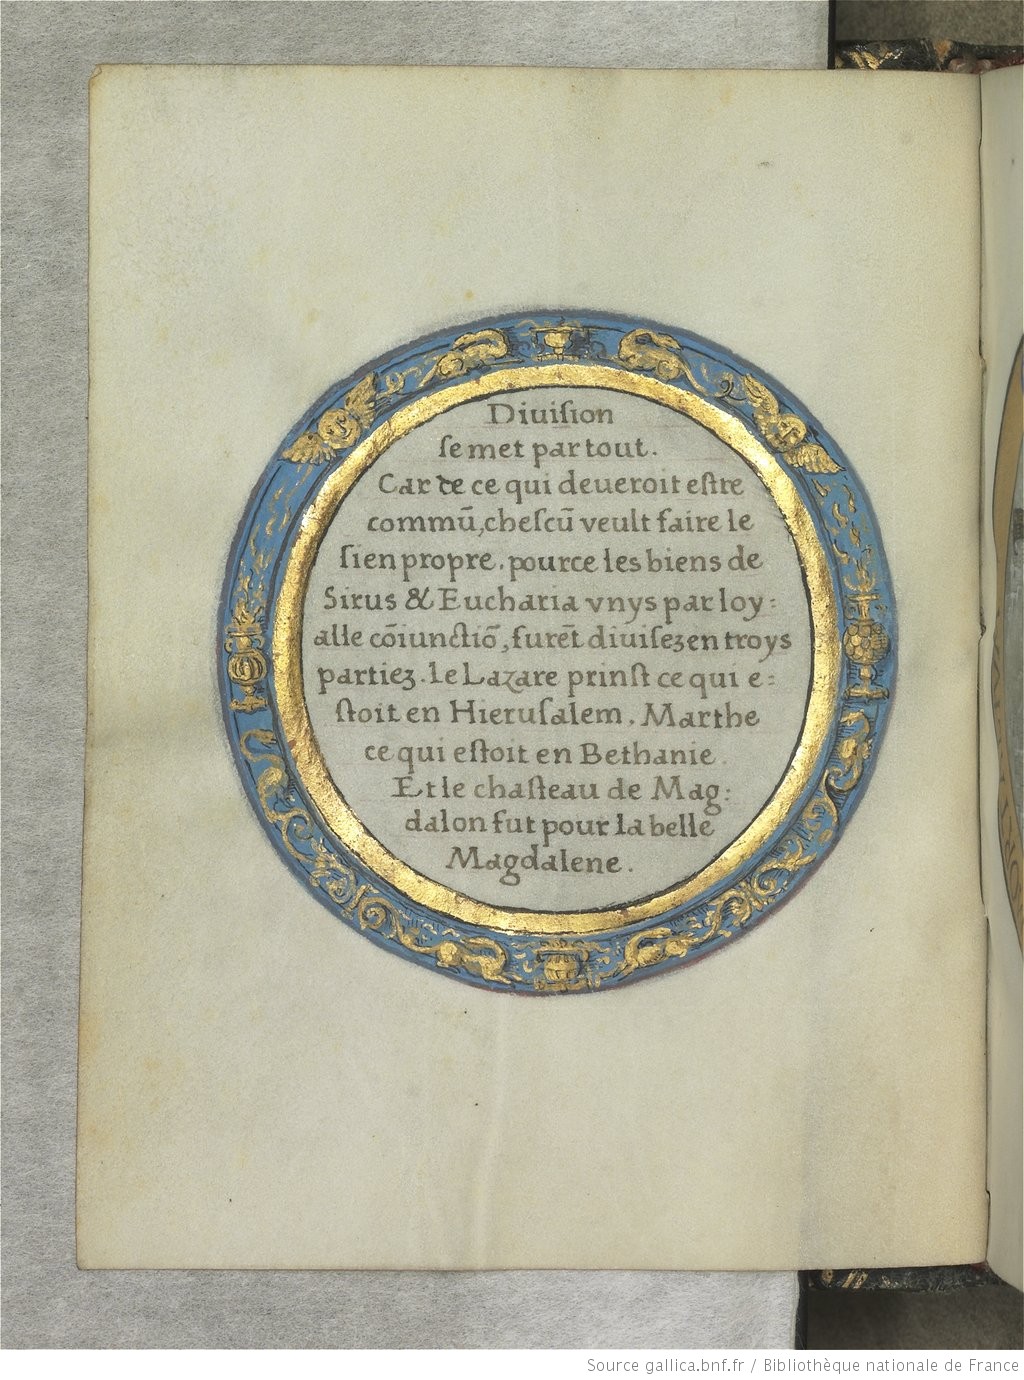 Diuiſion
ſe met par tout.
Car de ce qui deueroit eſtre
commū, cheſcū veult faire le
ſien propre. pource les biens de
Sirus & Eucharia vnys par loy:
alle cōiunctiō, furēt diuiſez en troys
partiez. le Lazare prinſt ce qui e:
ſtoit en Hieruſalem. Marthe
ce qui eſtoit en Bethanie.
Et le chaſteau de Mag:
dalon fut pour la belle
Magdalene.
Source gallica.bnf.fr / Bibliothèque nationale de France